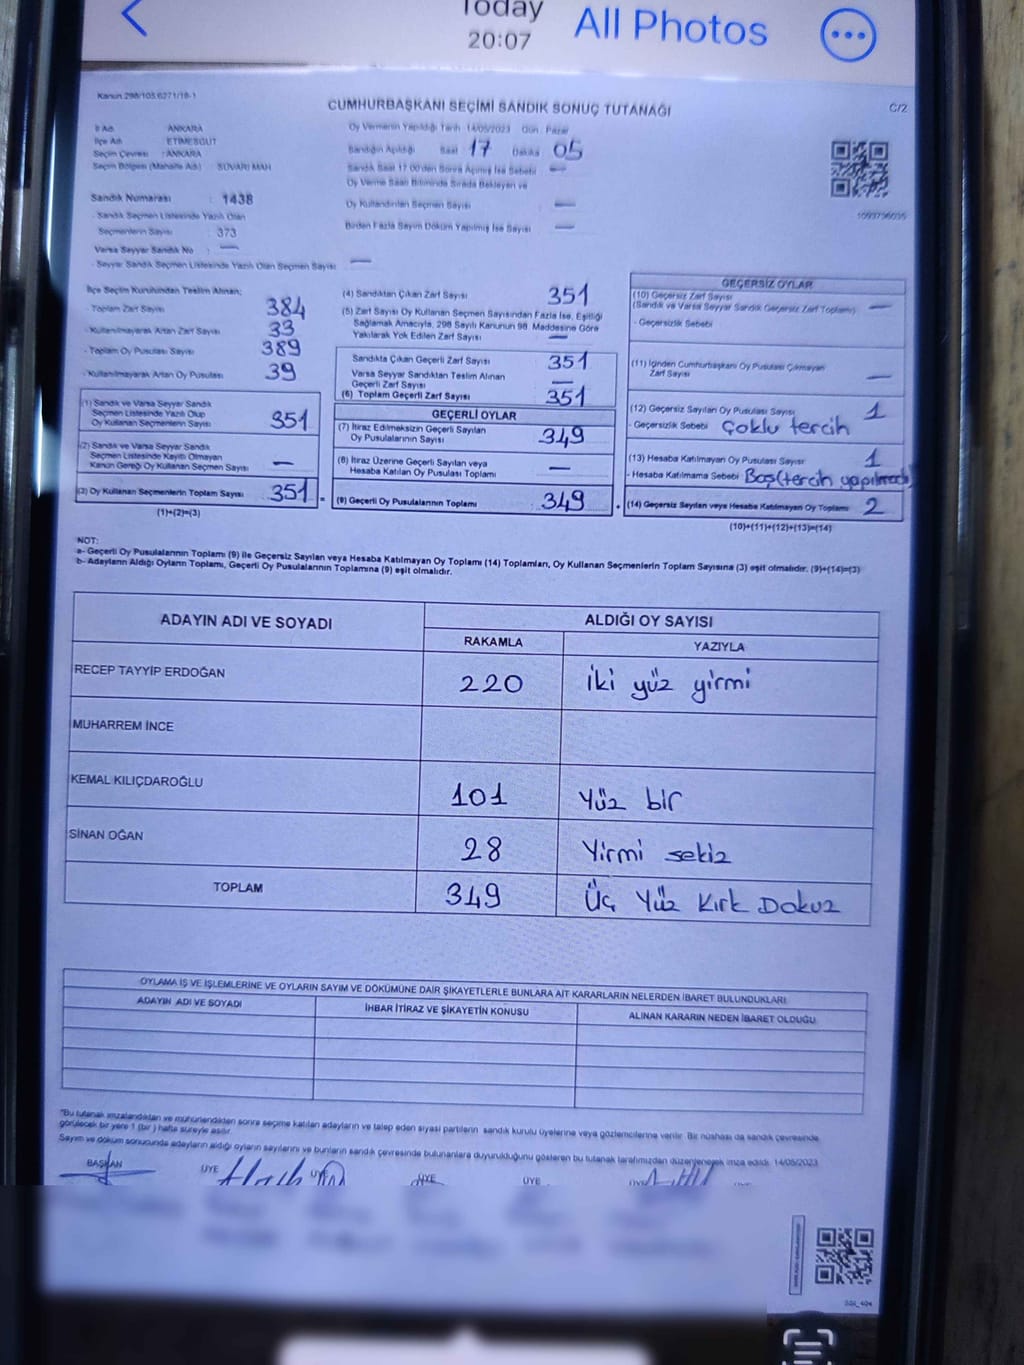 Today
20:07
All Photos
Kanun 298/105.6271/18-1
CUMHURBAŞKANI SEÇİMİ SANDIK SONUÇ TUTANAĞI
C/2
İl Adı ANKARA
İlçe Adı ETİMESGUT
Seçim Çevresi : ANKARA
Seçim Bölgesi (Mahalle Adı) SÜVARİ MAH
Oy Vermenin Yapıldığı Tarih 14/05/2023 Gün : Pazar
Sandığın Açıldığı Saat 17 Dakika 05
Sandık Saat 17.00'den Sonra Açılmış İse Sebebi —
Oy Verme Saati Bitiminde Sırada Bekleyen ve
Oy Kullandırılan Seçmen Sayısı —
Birden Fazla Sayım Döküm Yapılmış İse Sayısı —
Sandık Numarası : 1438
- Sandık Seçmen Listesinde Yazılı Olan
Seçmenlerin Sayısı 373
Varsa Seyyar Sandık No : —
- Seyyar Sandık Seçmen Listesinde Yazılı Olan Seçmen Sayısı —
İlçe Seçim Kurulundan Teslim Alınan;
- Toplam Zarf Sayısı 384
- Kullanılmayarak Artan Zarf Sayısı 33
- Toplam Oy Pusulası Sayısı 389
- Kullanılmayarak Artan Oy Pusulası 39
(1) Sandık ve Varsa Seyyar Sandık
Seçmen Listesinde Yazılı Olup
Oy Kullanan Seçmenlerin Sayısı 351
(2) Sandık ve Varsa Seyyar Sandık
Seçmen Listesinde Kayıtlı Olmayan
Kanun Gereği Oy Kullanan Seçmen Sayısı —
(3) Oy Kullanan Seçmenlerin Toplam Sayısı 351 =
(1)+(2)=(3)
(4) Sandıktan Çıkan Zarf Sayısı 351
(5) Zarf Sayısı Oy Kullanan Seçmen Sayısından Fazla İse, Eşitliği
Sağlamak Amacıyla, 298 Sayılı Kanunun 98. Maddesine Göre
Yakılarak Yok Edilen Zarf Sayısı —
Sandıkta Çıkan Geçerli Zarf Sayısı 351
Varsa Seyyar Sandıktan Teslim Alınan
Geçerli Zarf Sayısı —
(6) Toplam Geçerli Zarf Sayısı 351
GEÇERLİ OYLAR
(7) İtiraz Edilmeksizin Geçerli Sayılan
Oy Pusulalarının Sayısı 349
(8) İtiraz Üzerine Geçerli Sayılan veya
Hesaba Katılan Oy Pusulası Toplamı —
(9) Geçerli Oy Pusulalarının Toplamı 349 +
GEÇERSİZ OYLAR
(10) Geçersiz Zarf Sayısı
(Sandık ve Varsa Seyyar Sandık Geçersiz Zarf Toplamı) —
- Geçersizlik Sebebi
(11) İçinden Cumhurbaşkanı Oy Pusulası Çıkmayan
Zarf Sayısı —
(12) Geçersiz Sayılan Oy Pusulası Sayısı 1
- Geçersizlik Sebebi Çoklu tercih
(13) Hesaba Katılmayan Oy Pusulası Sayısı 1
- Hesaba Katılmama Sebebi Boş(tercih yapılmadı)
(14) Geçersiz Sayılan veya Hesaba Katılmayan Oy Toplamı 2
(10)+(11)+(12)+(13)=(14)
NOT:
a- Geçerli Oy Pusulalarının Toplamı (9) ile Geçersiz Sayılan veya Hesaba Katılmayan Oy Toplamı (14) Toplamları, Oy Kullanan Seçmenlerin Toplam Sayısına (3) eşit olmalıdır. (9)+(14)=(3)
b- Adayların Aldığı Oyların Toplamı, Geçerli Oy Pusulalarının Toplamına (9) eşit olmalıdır.
ADAYIN ADI VE SOYADI
ALDIĞI OY SAYISI
RAKAMLA YAZIYLA
RECEP TAYYİP ERDOĞAN 220 iki yüz yirmi
MUHARREM İNCE
KEMAL KILIÇDAROĞLU 101 Yüz bir
SİNAN OĞAN 28 Yirmi sekiz
TOPLAM 349 Üç Yüz Kırk Dokuz
OYLAMA İŞ VE İŞLEMLERİNE VE OYLARIN SAYIM VE DÖKÜMÜNE DAİR ŞİKAYETLERLE BUNLARA AİT KARARLARIN NELERDEN İBARET BULUNDUKLARI
ADAYIN ADI VE SOYADI İHBAR İTİRAZ VE ŞİKAYETİN KONUSU ALINAN KARARIN NEDEN İBARET OLDUĞU
"Bu tutanak imzalandıktan ve mühürlendikten sonra seçime katılan adayların ve talep eden siyasi partilerin sandık kurulu üyelerine veya gözlemcilerine verilir. Bir nüshası da sandık çevresinde
görülecek bir yere 1 (bir) hafta süreyle asılır.
Sayım ve döküm sonucunda adayların aldığı oyların sayılarını ve bunların sandık çevresinde bulunanlara duyurulduğunu gösteren bu tutanak tarafımızdan düzenlenerek imza edildi. 14/05/2023
BAŞKAN ÜYE ÜYE ÜYE ÜYE ÜYE